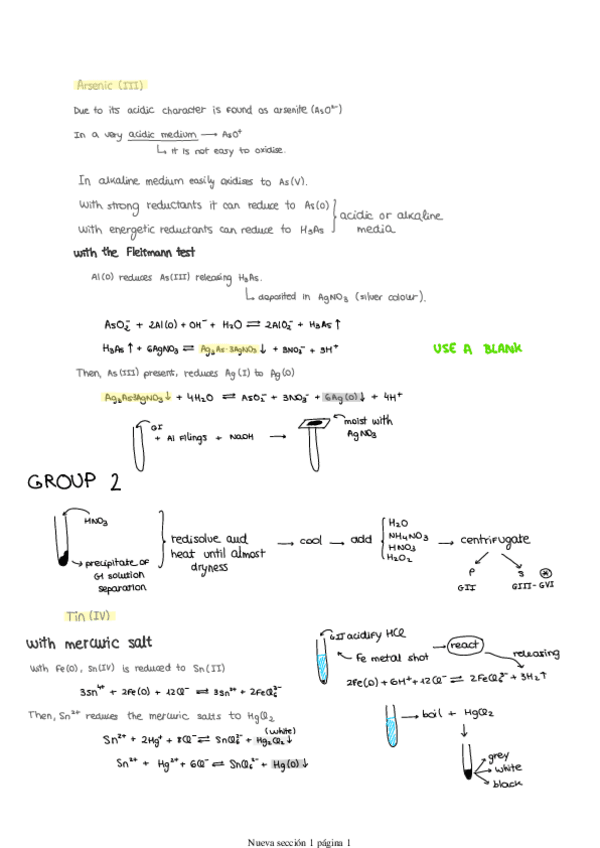 Arsenic (III)
Due to its acidic character is found as arsenite (AsO²⁻)
In a very acidic medium → AsO⁺
↳ it is not easy to oxidise.
In alkaline medium easily oxidises to As(V).
With strong reductants it can reduce to As(0)
With energetic reductants can reduce to H₃As
acidic or alkaline
media
with the Fleitmann test
Al(0) reduces As(III) releasing H₃As.
↳ deposited in AgNO₃ (silver colour).
AsO₂⁻ + 2Al(0) + OH⁻ + H₂O ⇌ 2AlO₂⁻ + H₃As↑
H₃As↑ + 6AgNO₃ ⇌ Ag₃As·3AgNO₃↓ + 3NO₃⁻ + 3H⁺
USE A BLANK
Then, As(III) present, reduces Ag(I) to Ag(0)
Ag₃As·3AgNO₃↓ + 4H₂O ⇌ AsO₂⁻ + 3NO₃⁻ + 6Ag(0)↓ + 4H⁺
GI
+ Al Filings + NaOH →
moist with
AgNO₃
GROUP 2
HNO₃
→ precipitate of
GI solution
separation
redisolve and
heat until almost
dryness
→ cool → add
H₂O
NH₄NO₃
HNO₃
H₂O₂
→ centrifugate
P
GII
S
GIII-GVI
Tin (IV)
with mercuric salt
With Fe(0), Sn(IV) is reduced to Sn(II)
3Sn⁴⁺ + 2Fe(0) + 12Cl⁻ ⇌ 3Sn²⁺ + 2FeCl₆³⁻
Then, Sn²⁺ reduces the mercuric salts to HgCl₂
Sn²⁺ + 2Hg⁺ + 8Cl⁻ ⇌ SnCl₆²⁻ + Hg₂Cl₂↓
(white)
Sn²⁺ + Hg²⁺ + 6Cl⁻ ⇌ SnCl₆²⁻ + Hg(0)↓
GII acidify HCl
Fe metal shot → react
releasing
2Fe(0) + 6H⁺ + 12Cl⁻ ⇌ 2FeCl₆³⁻ + 3H₂↑
→ boil + HgCl₂
grey
white
black
Nueva sección 1 página 1